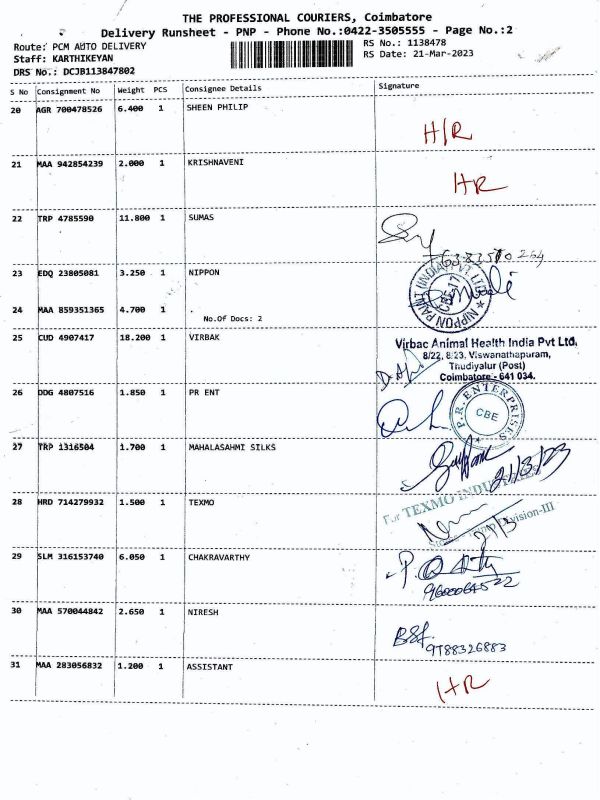 THE PROFESSIONAL COURIERS, Coimbatore
Delivery Runsheet - PNP - Phone No.:0422-3505555 - Page No.:2
Route: PCM AUTO DELIVERY
RS No.: 1138478
Staff: KARTHIKEYAN
RS Date: 21-Mar-2023
DRS No.: DCJB113847802
S No Consignment No Weight PCS Consignee Details Signature
20 AGR 700478526 6.400 1 SHEEN PHILIP
H/R
21 MAA 942854239 2.000 1 KRISHNAVENI
HR
22 TRP 4785590 11.800 1 SUMAS
23 EDQ 23805081 3.250 1 NIPPON
NIPPON PAINT (INDIA) PVT. LTD.
24 MAA 859351365 4.700 1 .
No.Of Docs: 2
25 CUD 4907417 18.200 1 VIRBAK
Virbac Animal Health India Pvt Ltd,
8/22, 8/23, Viswanathapuram,
Thudiyalur (Post)
Coimbatore - 641 034.
26 DDG 4807516 1.850 1 PR ENT
P.R. ENTERPRISES
CBE
27 TRP 1316504 1.700 1 MAHALASAHMI SILKS
21/3/23
28 HRD 714279932 1.500 1 TEXMO
For TEXMO INDUSTRIES
Division-III
21/3
29 SLM 316153740 6.050 1 CHAKRAVARTHY
30 MAA 570044842 2.650 1 NIRESH
9788326883
31 MAA 283056832 1.200 1 ASSISTANT
HR